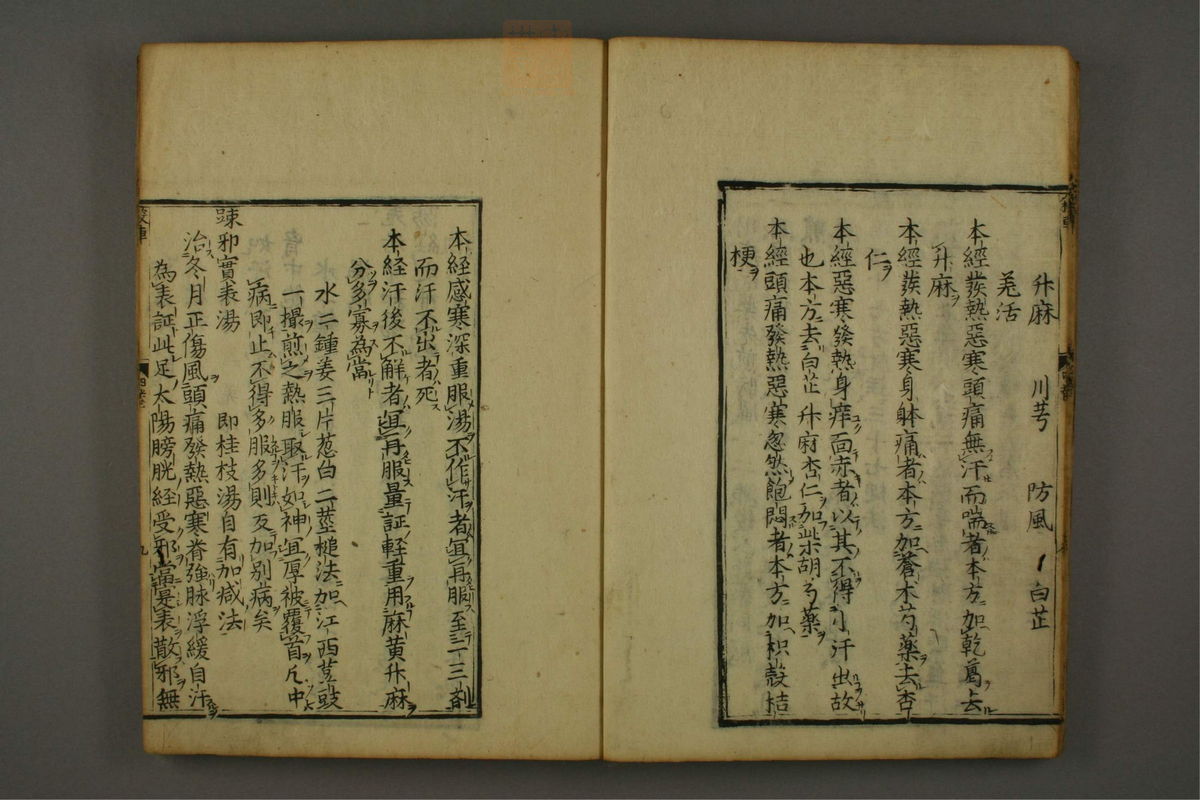 升麻 川芎 防風 白芷
羌活
本經發熱惡寒頭痛無汗而喘者本方加乾葛去
升麻
本經發熱惡寒身躰痛者本方加蒼朮芍藥去杏
仁
本經惡寒發熱身痒面赤者以其不得小汗出故
也本方去白芷升麻杏仁加柴胡芍藥
本經頭痛發熱惡寒忽然飽悶者本方加枳殼桔
梗
本経感寒深重服湯不作汗者宜再服至二三剤
而汗不出者死
本経汗後不解者宜再服量証軽重用麻黄升麻
分多寡為當
水二鍾姜三片葱白二莖槌法加江西荳豉
一撮煎之熱服取汗如神宜厚被覆首凡中
病即止不得多服多則反加別病矣
踈邪實表湯 即桂枝湯自有加减法
治冬月正傷風頭痛發熱惡寒脊強脉浮緩自汗
為表証此足太陽膀胱経受邪當実表散邪無